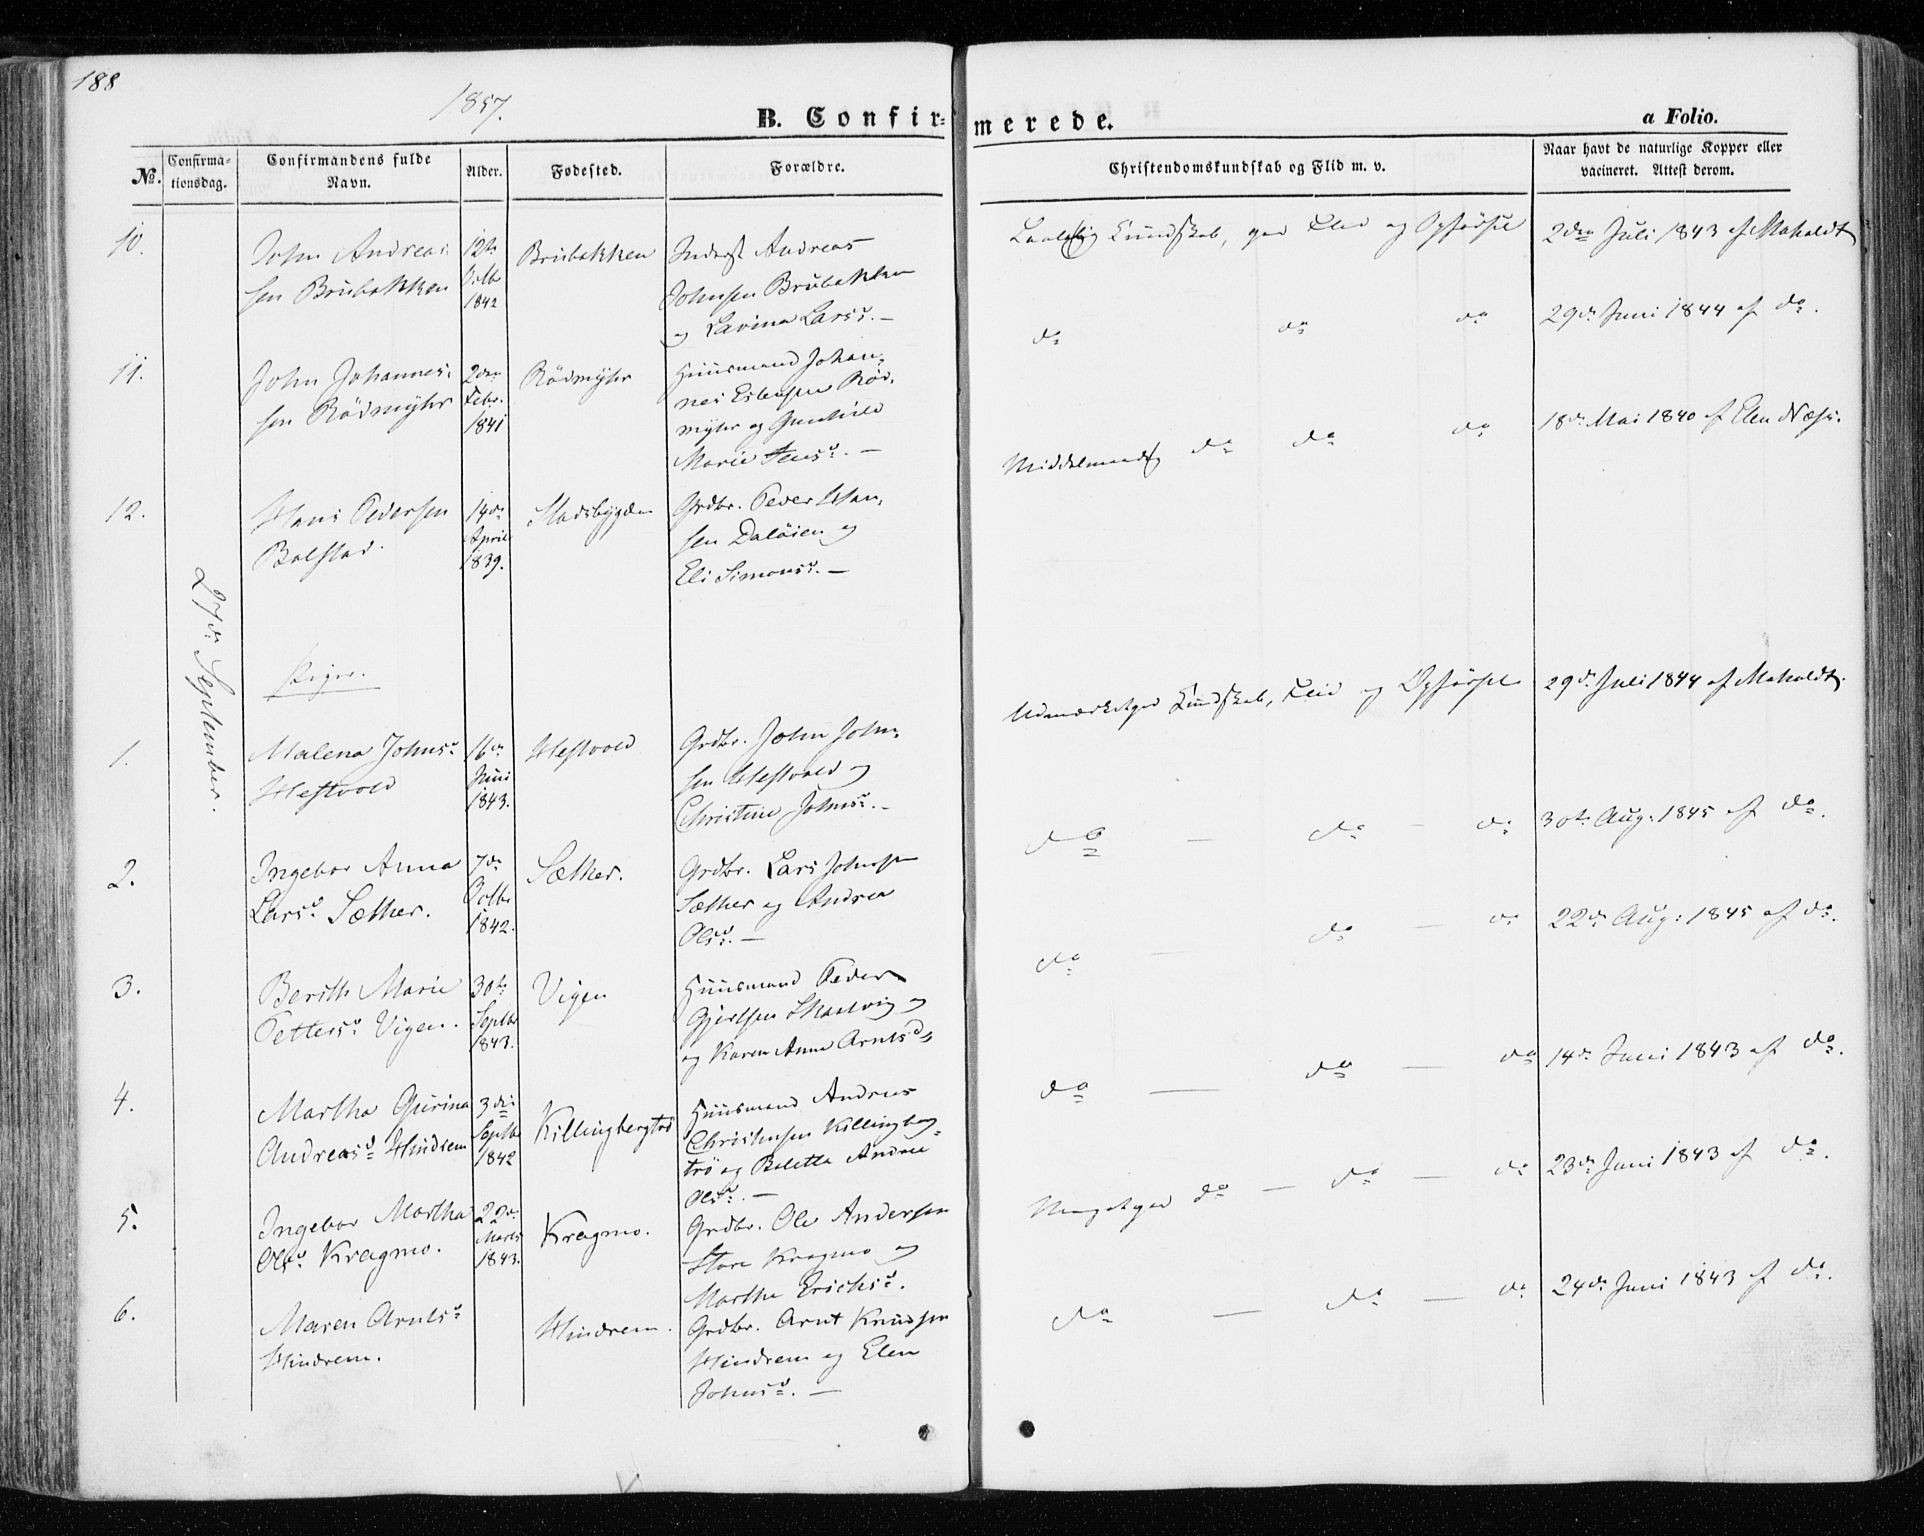 188
1857.
B. Confir-
merede.
a Folio.
No.
Confirma-
tionsdag.
Confirmandens fulde
Navn.
Alder.
Fødested.
Forældre.
Christendomskundskab og Flid m. v.
Naar havt de naturlige Kopper eller
vaccineret. Attest derom.
27de September.
10.
John Andreas-
sen Brubakken
12te
Octb.
1842
Brubakken
Inderst Andreas
Johnsen Brubakken
og Lavina Larsd. —
Kundskab, god Flid og Opførsel
2den Juli 1843 af Maholdt
11.
John Johannes-
sen Rödmyhr
2den
Febr.
1841
Rödmyhr
Huusmand Johan-
nes Estensen Röd-
myhr og Gunhild
Marie Jensd. —
do do do
29de Juni 1844 af do.
12.
Hans Pedersen
Bolstad.
14de
April
1839.
Stadsbygden
Grdbr. Peder Han-
sen Daløien og
Eli Simonsd. —
Middelmaadig do do do
18de Mai 1840 af Elen Næss.
Piger.
1.
Malena Johnsd.
Hestvold
16de
Juni
1843.
Hestvold
Grdbr. John John-
sen Hestvold og
Christine Johnsd. —
Udmærketgod Kundskab, Flid og Opførsel
29de Juli 1844 af Maholdt.
2.
Ingebor Anna
Larsd. Sæther.
7de
Octb.
1842.
Sæther.
Grdbr. Lars Johnsen
Sæther og Andrea
Olsd. —
do — do — do
30te Aug: 1845 af do.
3.
Berith Marie
Pettersd. Vigen.
30te
Septbr
1843.
Vigen
Huusmand Peder
Gjertsen Skarvig og
og Karen Anna Arntsd.
do — do — do
22de Aug: 1845 af do.
4.
Martha Gurina
Andreasd. Hindrem
3die
Septbr
1842
Killingbergtrö
Huusmand Andreas
Christensen Killingberg-
trö og Beletta Andrea
Olsd. —
do — do — do
14de Juni 1843 af do.
5.
Ingebor Martha
Olsd. Kragmo.
22de
Marts
1843.
Kragmo.
Grdbr. Ole Andersen
Store Kragmo og
Martha Erichsd.
Megetgod do — do — do
23de Juni 1843 af do.
6.
Maren Arntsd.
Hindrem.
Hindrem.
Grdbr. Arnt Knudsen
Hindrem og Elen
Johnsd. —
do — do — do
24de Juni 1843 af do.